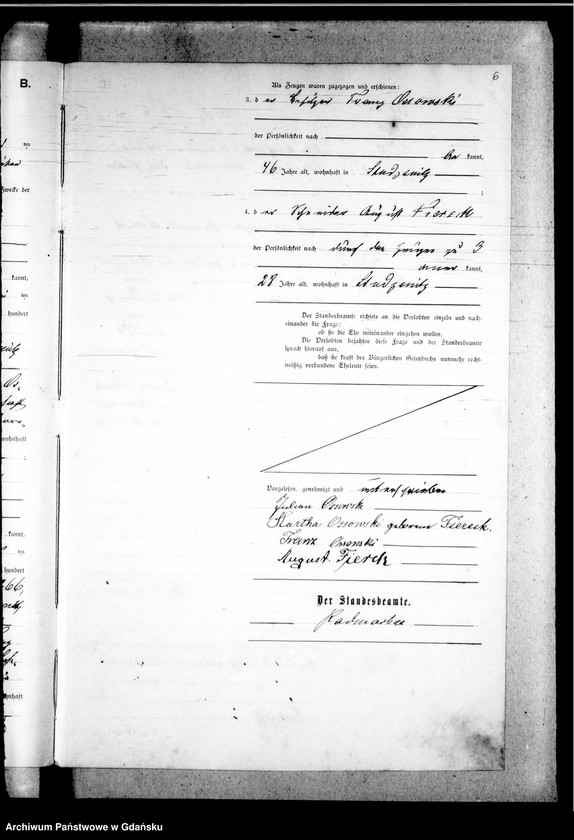 B.
6
Als Zeugen waren zugezogen und erschienen:
3. d er Besitzer Franz Ossowski
der Persönlichkeit nach
be kannt,
46 Jahre alt, wohnhaft in Studzenitz
;
4. d er Schneider August Fiereck
der Persönlichkeit nach durch den Zeugen zu 3
aner kannt,
28 Jahre alt, wohnhaft in Studzenitz
Der Standesbeamte richtete an die Verlobten einzeln und nach-
einander die Frage:
ob sie die Ehe miteinander eingehen wollen.
Die Verlobten bejahten diese Frage und der Standesbeamte
sprach hierauf aus,
daß sie kraft des Bürgerlichen Gesetzbuchs nunmehr recht-
mäßig verbundene Eheleute seien.
Vorgelesen, genehmigt und unterschrieben
Julian Ossowski
Martha Ossowski geborene Fiereck.
Franz Ossowski
August Fierek
Der Standesbeamte.
ten
Zwecke der
kannt,
ten
hundert
wohnhaft
kannt,
hundert
66,
wohnhaft
Archiwum Państwowe w Gdańsku